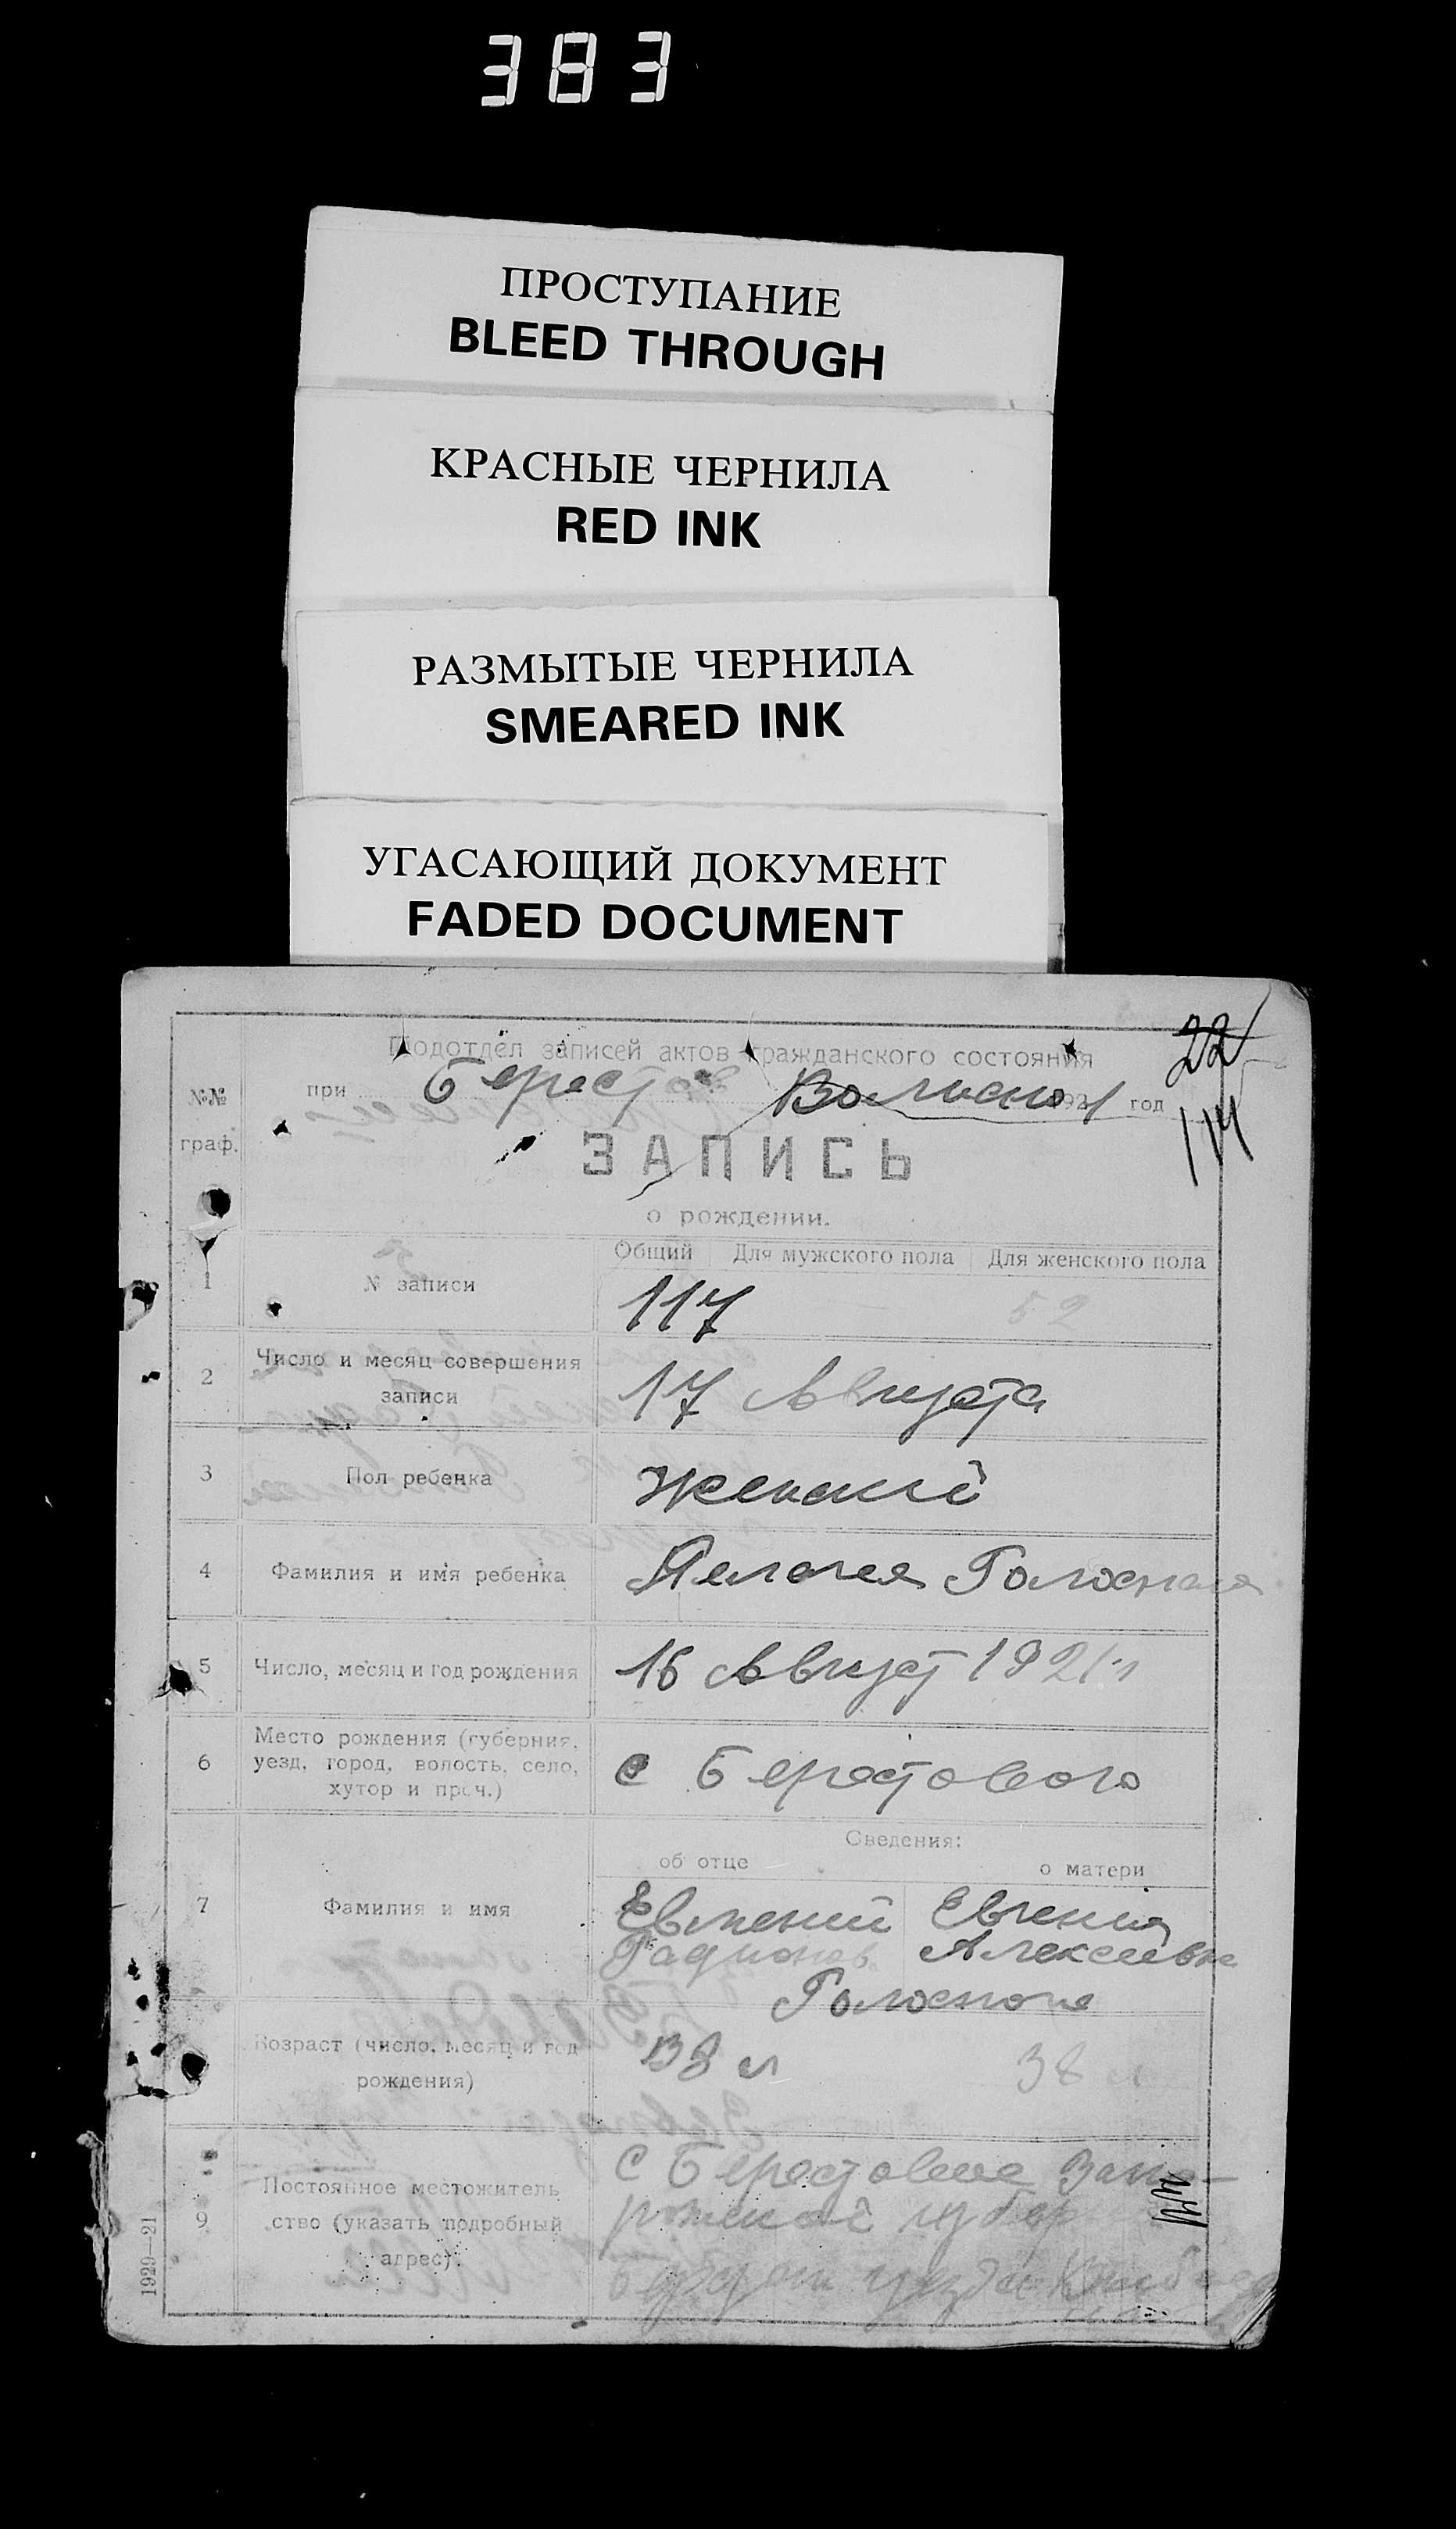 383
ПРОСТУПАНИЕ
BLEED THROUGH
КРАСНЫЕ ЧЕРНИЛА
RED INK
РАЗМЫТЫЕ ЧЕРНИЛА
SMEARED INK
УГАСАЮЩИЙ ДОКУМЕНТ
FADED DOCUMENT
22
Подотдел записей актов гражданского состояния
№№ граф.
при Берест 192 1 год
114
ЗАПИСЬ
о рождении.
Общий Для мужского пола Для женского пола
1 № записи 117 52
2 Число и месяц совершения
записи
17 Августа
3 Пол ребенка Женский
4 Фамилия и имя ребенка
5 Число, месяц и год рождения 16 Август 1921 г
6 Место рождения (губерния,
уезд, город, волость, село,
хутор и проч.)
с Берестового
Сведения:
об отце о матери
7 Фамилия и имя
Евгения
Алексеевна
Возраст (число, месяц и год
рождения)
38 л 38 л
9 Постоянное местожитель
ство (указать подробный
адрес).
с Берестовое Запо-
рожской губер
уезда
1929—21